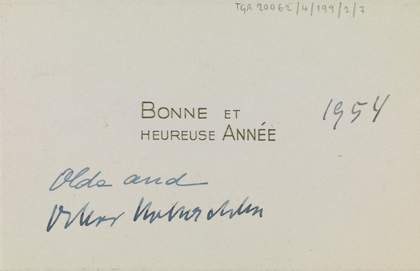 TGA 20062/4/199/2/7
BONNE ET
HEUREUSE ANNÉE
1954
Olda and
Oskar Kokoschka